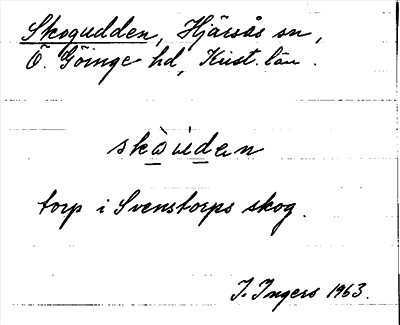 Skogudden, Hjärsås sn,
Ö. Göinge hd, Krist. län.
torp i Svenstorps skog.
I. Ingers 1963.